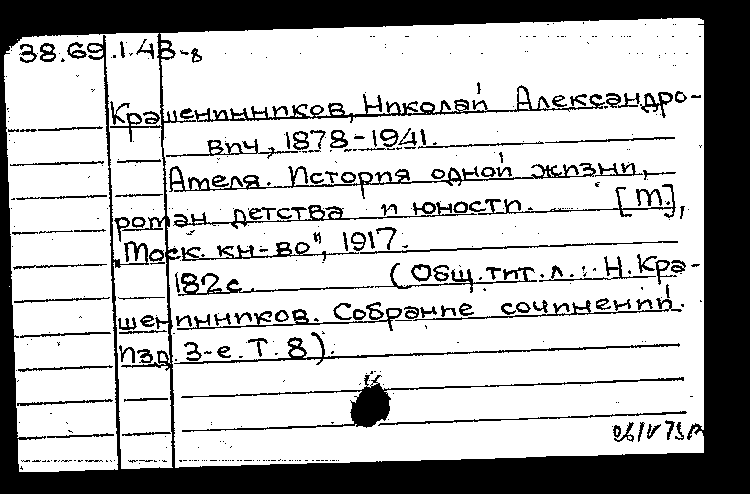 38.69.1.43-8
Крашенинников, Николай Александро-
вич, 1878-1941.
Амеля. История одной жизни,
роман детства и юности. [М.],
„Моск. кн-во", 1917.
182 с. (Общ. тит. л.: Н. Кра-
шенинников. Собрание сочинений.
изд. 3-е. Т. 8).